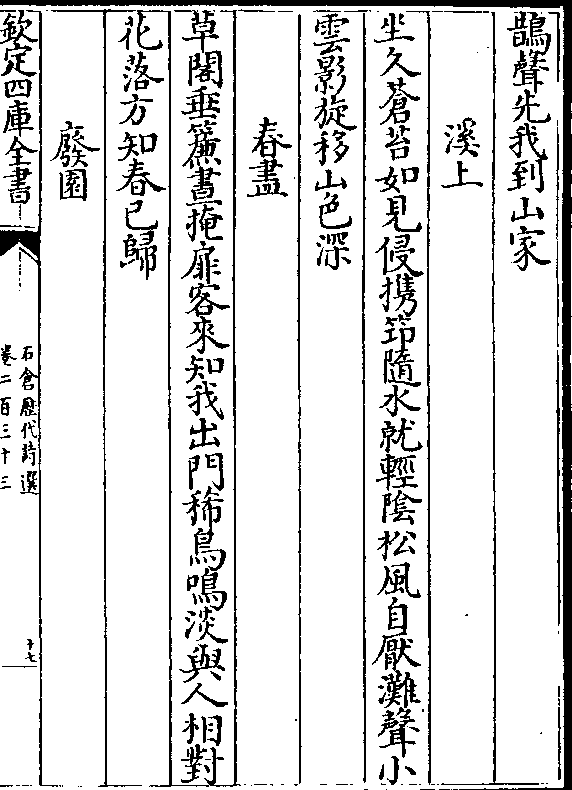 鵲聲先我到山家
溪上
坐久蒼苔如見侵携筇隨水就輕陰松風自厭灘聲小
雲影旋移山色深
春盡
草閣垂簾晝掩扉客來知我出門稀鳥鳴淡與人相對
花落方知春已歸
廢園
欽定四庫全書
石倉歷代詩選
卷二百三十三
十七